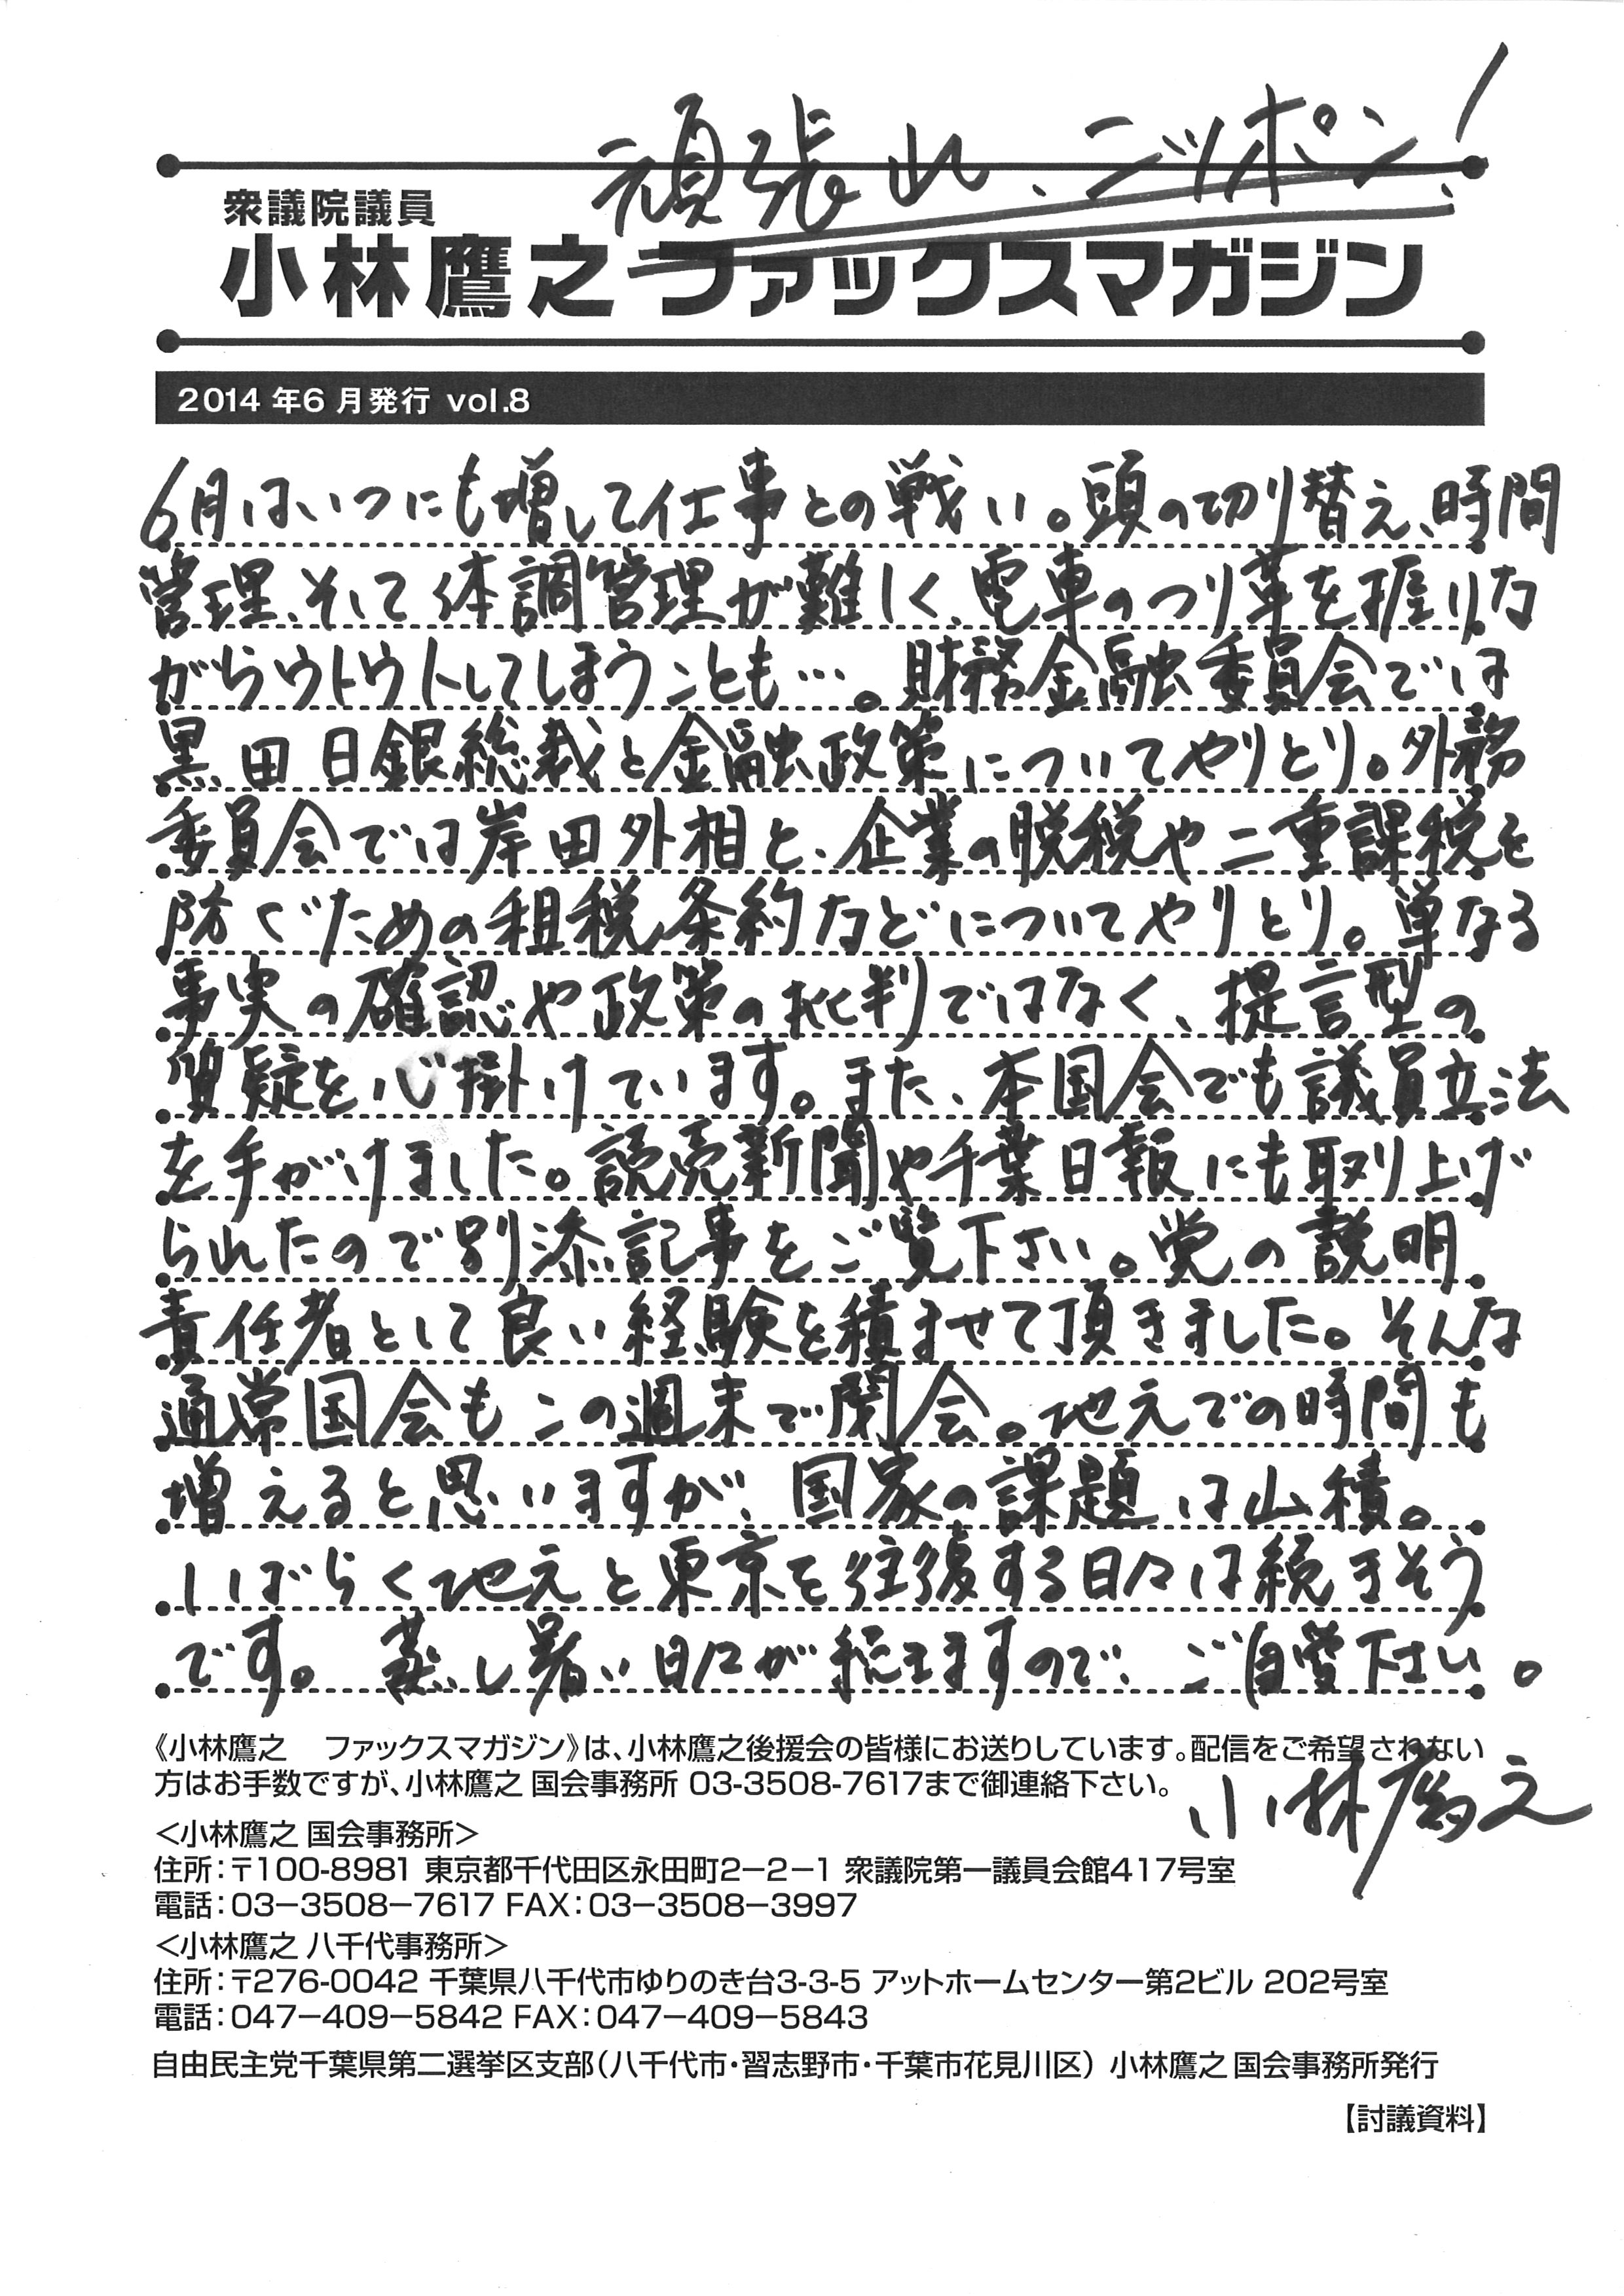 頑張れ、ニッポン!
衆議院議員
小林鷹之 ファックスマガジン
2014年6月発行 vol.8
6月はいつにも増して仕事との戦い。頭の切り替え、時間
管理、そして体調管理が難しく、電車のつり革を握りな
がらウトウトしてしまうことも…。財務金融委員会では
黒田日銀総裁と金融政策についてやりとり。外務
委員会では岸田外相と、企業の脱税や二重課税を
防ぐための租税条約などについてやりとり。単なる
事実の確認や政策の批判ではなく、提言型の
質疑を心掛けています。また、本国会でも議員立法
を手がけました。読売新聞や千葉日報にも取り上げ
られたので別添記事をご覧下さい。党の説明
責任者として良い経験を積ませて頂きました。そんな
通常国会もこの週末で閉会。地元での時間も
増えると思いますが、国家の課題は山積。
しばらく地元と東京を往復する日々は続きそう
です。蒸し暑い日々が続きますので、ご自愛下さい。
《小林鷹之　ファックスマガジン》は、小林鷹之後援会の皆様にお送りしています。配信をご希望されない
方はお手数ですが、小林鷹之 国会事務所 03-3508-7617まで御連絡下さい。
小林鷹之
＜小林鷹之 国会事務所＞
住所：〒100-8981 東京都千代田区永田町2－2－1 衆議院第一議員会館417号室
電話：03－3508－7617 FAX：03－3508－3997
＜小林鷹之 八千代事務所＞
住所：〒276-0042 千葉県八千代市ゆりのき台3-3-5 アットホームセンター第2ビル 202号室
電話：047－409－5842 FAX：047－409－5843
自由民主党千葉県第二選挙区支部（八千代市・習志野市・千葉市花見川区） 小林鷹之 国会事務所発行
【討議資料】